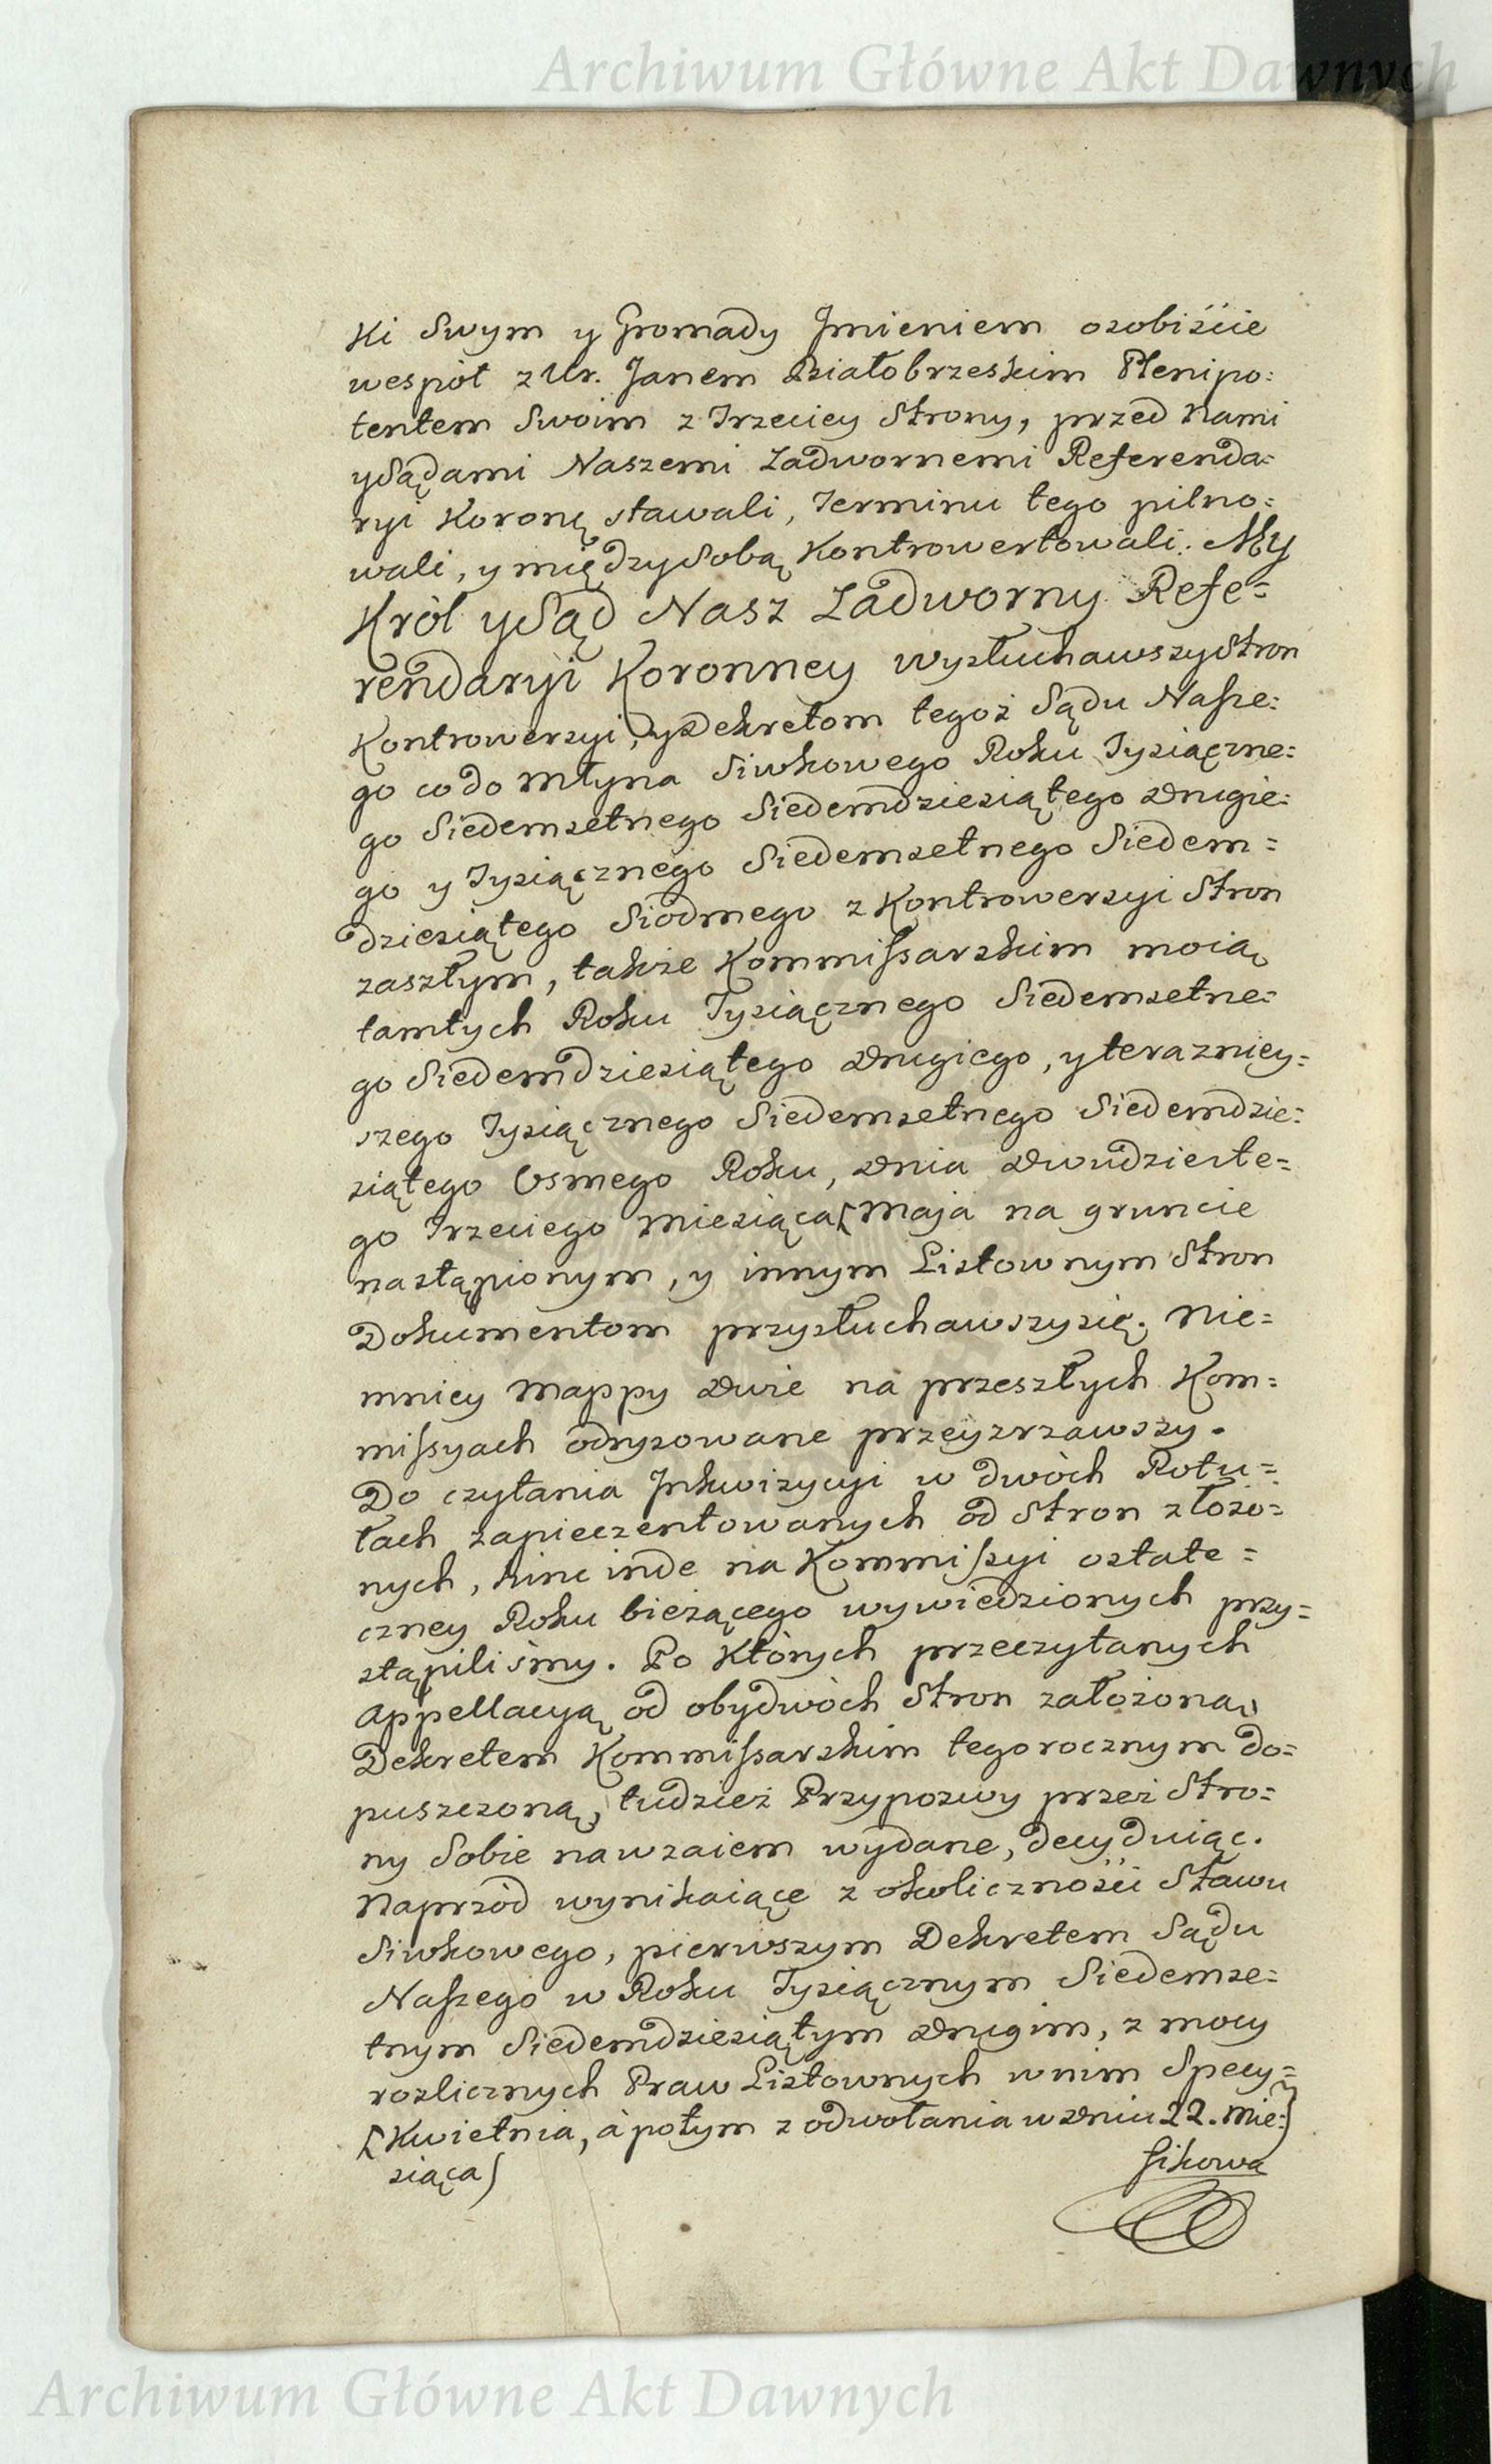 Archiwum Główne Akt Dawnych
ki Swym y Gromady Jmieniem osobiście
wespół z Ur. Janem Białobrzeskim Plenipo=
tentem Swoim z Trzeciey Strony, przed Nami
y Sądami Naszemi Zadwornemi Referenda=
ryi Koronę stawali, Terminu tego pilno=
wali, y między Sobą Kontrowertowali. My
Król y Sąd Nasz Zadworny Refe=
rendaryi Koronney wysłuchawszy Stron
Kontrowersyi, y Dekretom tegoż Sądu Nasze=
go co do Młyna Siwkowego Roku Tysiączne=
go Siedemsetnego Siedemdziesiątego Drugie=
go y Tysiącznego Siedemsetnego Siedem=
dziesiątego Siodmego z Kontrowersyi Stron
zaszłym, także Kommissarskim moią
tamtych Roku Tysiącznego Siedemsetne=
go Siedemdziesiątego Drugiego, y terazniey=
szego Tysiącznego Siedemsetnego Siedemdzie=
siątego Osmego Roku, Dnia Dwudzieste=
go Trzeciego Miesiąca [ Maja na gruncie
nastąpionym, y innym Listownym Stron
Dokumentom przysłuchawszy się. Nie=
mniey Mappy Dwie na przeszłych Kom=
missyach odrysowane przeyzrzawszy.
Do czytania Jnkwizycyi w dwóch Rotu=
łach zapieczentowanych od Stron złożo=
nych, hinc inde na Kommissyi ostate=
czney Roku bieżącego wywiedzionych przy=
stąpiliśmy. Po Których przeczytanych
Appellacyą od obydwóch Stron założoną,
Dekretem Kommissarskim tegorocznym do=
puszczoną, tudzież Przypozwy przez Stro=
ny Sobie nawzaiem wydane, decyduiąc.
Naprzód wynikaiące z okoliczności Stawu
Siwkowego, pierwszym Dekretem Sądu
Naszego w Roku Tysiącznym Siedemse=
tnym Siedemdziesiątym Drugim, z mocy
rozlicznych Praw Listownych w nim Specy=
[ Kwietnia, à potym z odwołania w Dniu 22. Mie=
siąca ]
fikowa
Archiwum Główne Akt Dawnych